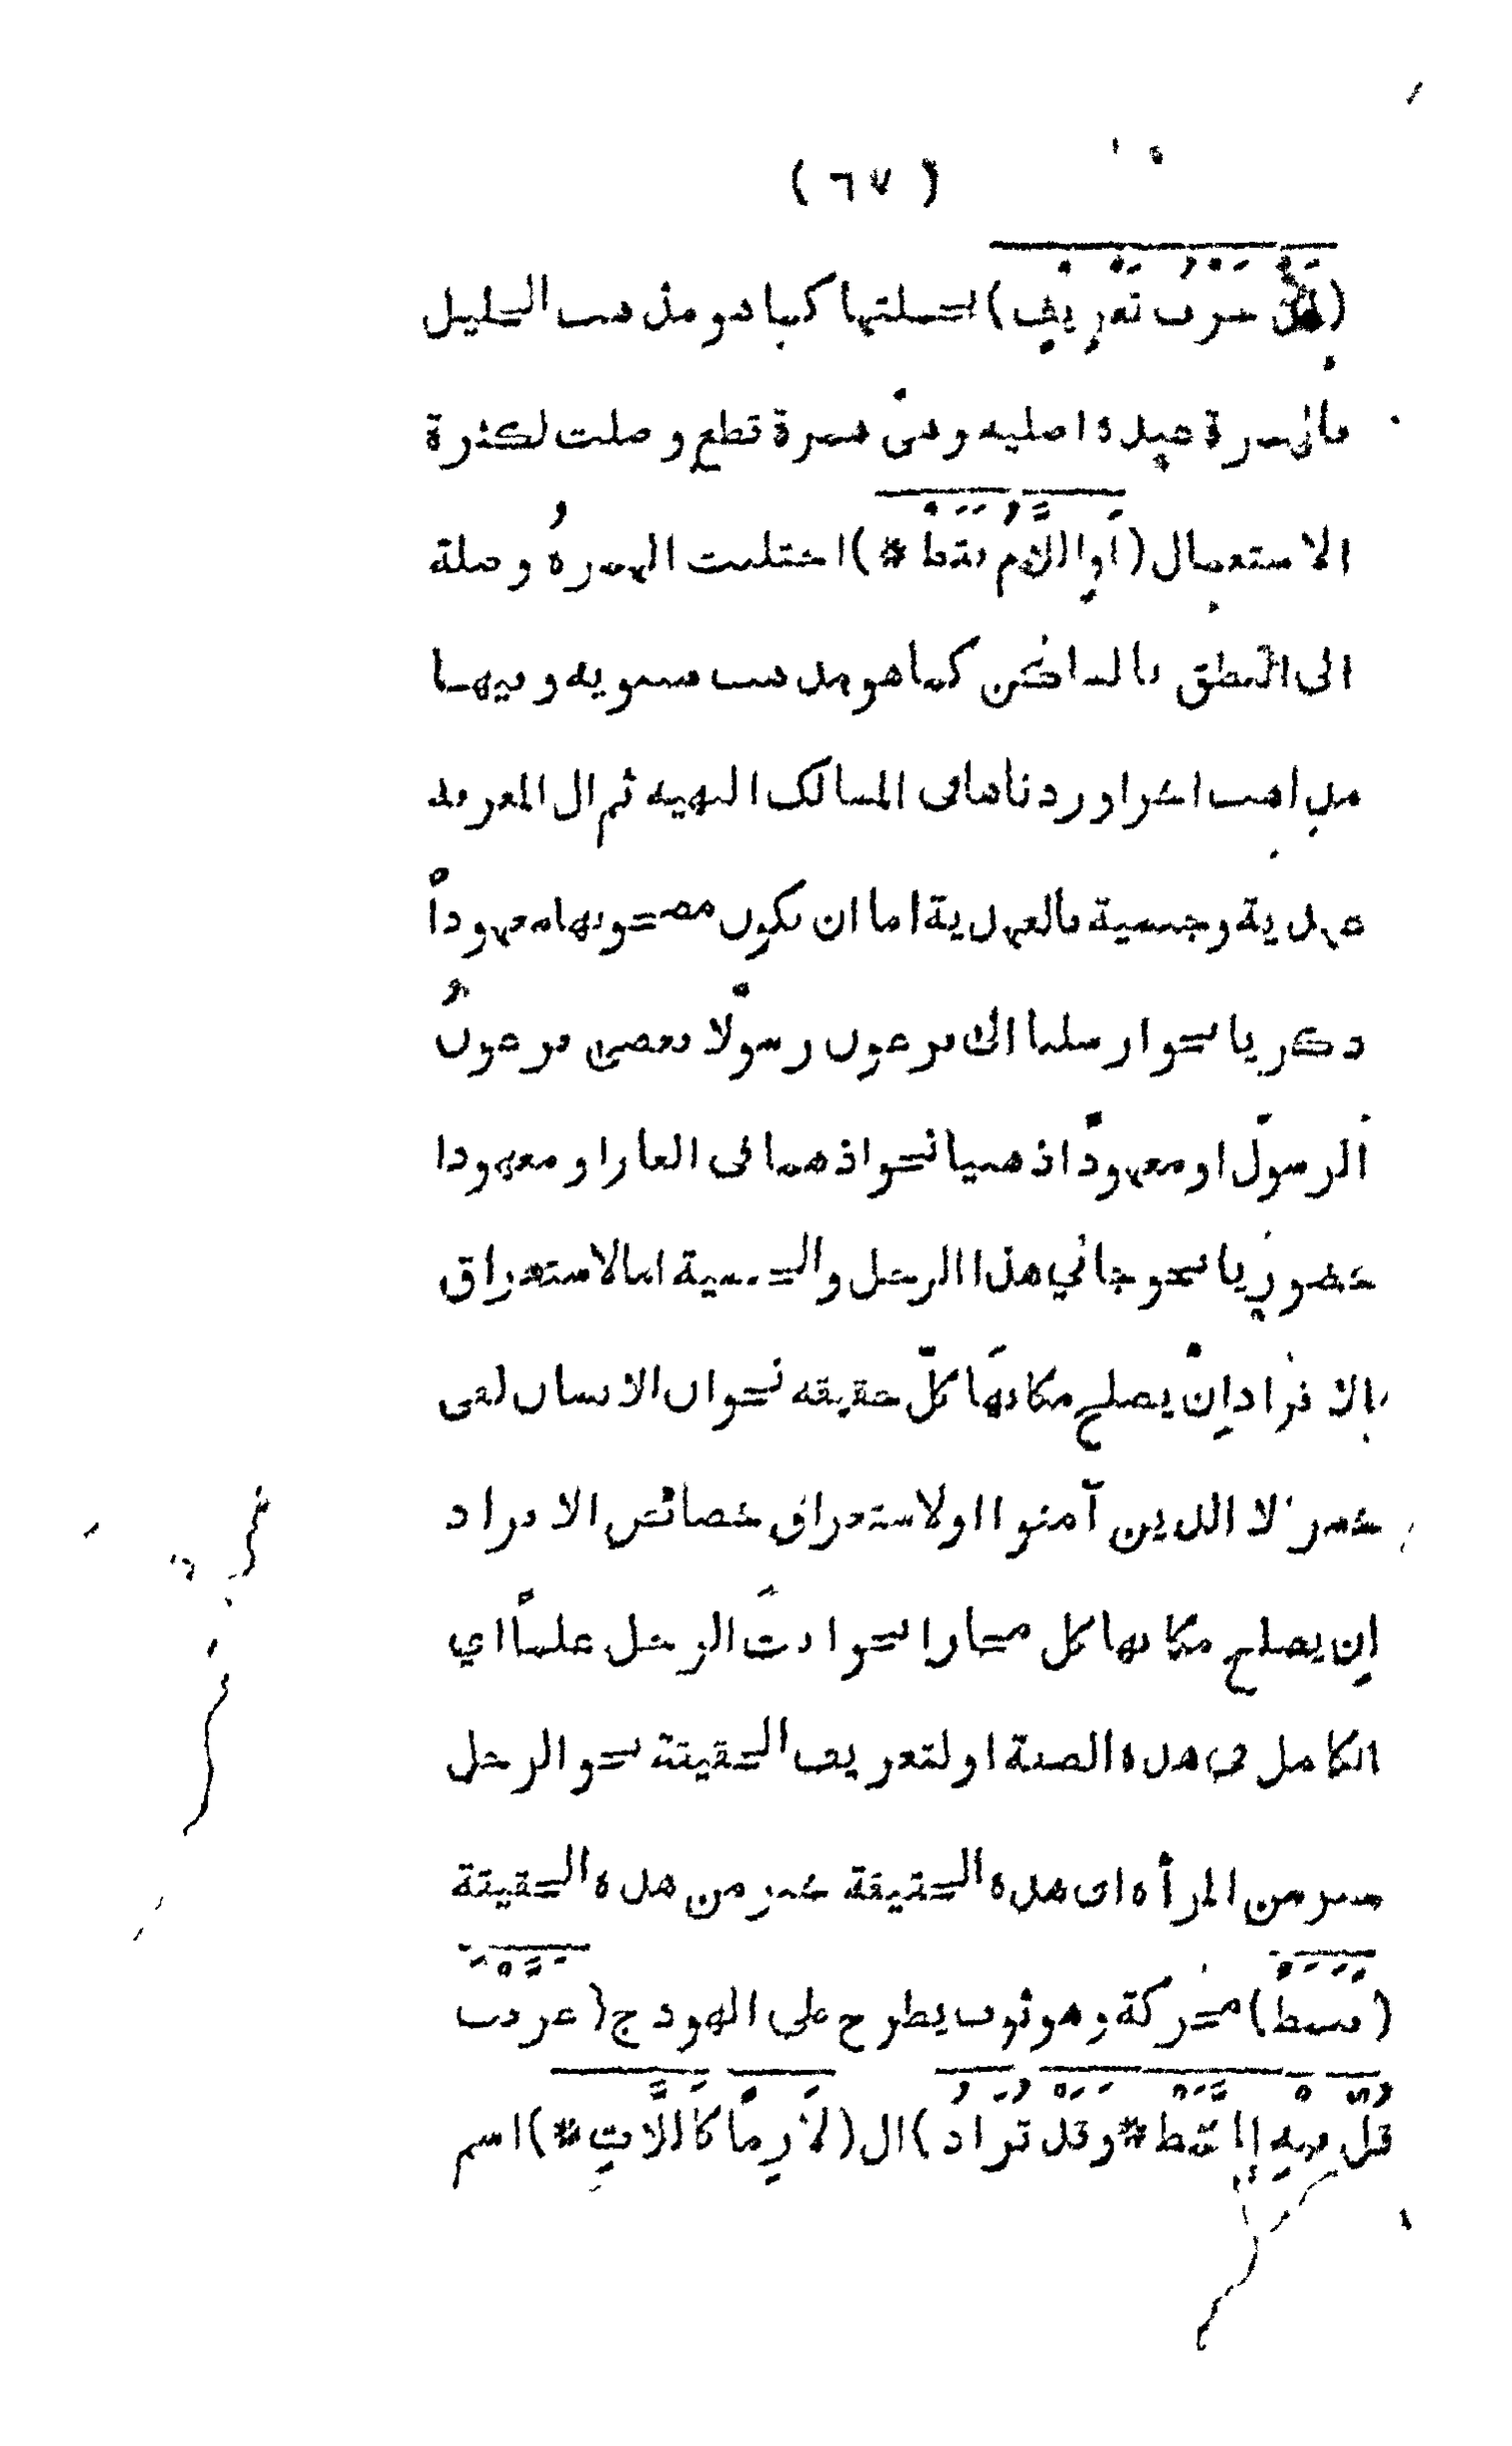 ( ٦٧ )
(اَلْ حَرْفُ تَعْرِيفٍ) بجملتها كما هو مذهب الخليل
فالهمزة عنده اصليه وهى همزة قطع وصلت لكثرة
الاستعمال (اَوِ اللَّامُ فَقَطْ *) اجتلبت الهمزةُ وصلة
الى النطق بالساكن كما هو مذهب سيبويه وفيهما
مذاهب اخر اوردناها فى المسالك البهيه ثم ال المعرفه
عهدية وجنسية فالعهدية اما ان يكون مصحوبها معهوداً
ذكريا نحو ارسلنا الى فرعون رسولًا فعصى فرعونُ
الرسولَ او معهودًا ذهنيا نحو اذ هما فى الغار او معهودا
حضوريا نحو جاني هذا الرجل والجنسية اما لاستغراق
الافراد اِنْ يصلح مكانهَا كلّ حقيقه نحو ان الانسان لفى
خسر الا الذين آمنوا او لاستغراق خصائص الافراد
اِن يصلح مكانها كل مجازا نحو انتَ الرجل علماً اي
الكامل فى هذه الصفة او لتعريف الحقيقة نحو الرجل
خير من المرأة اى هذه الحقيقة خير من هذه الحقيقة
(فَنَمَطٌ) محركة وهو ثوب يطرح على الهودج (عَرَّفْتَ
قُلْ فِيْهِ اِلنَّمَطْ * وَقَدْ تُزَادُ) ال (لَازِمًا كَاللَّاتِ *) اسم